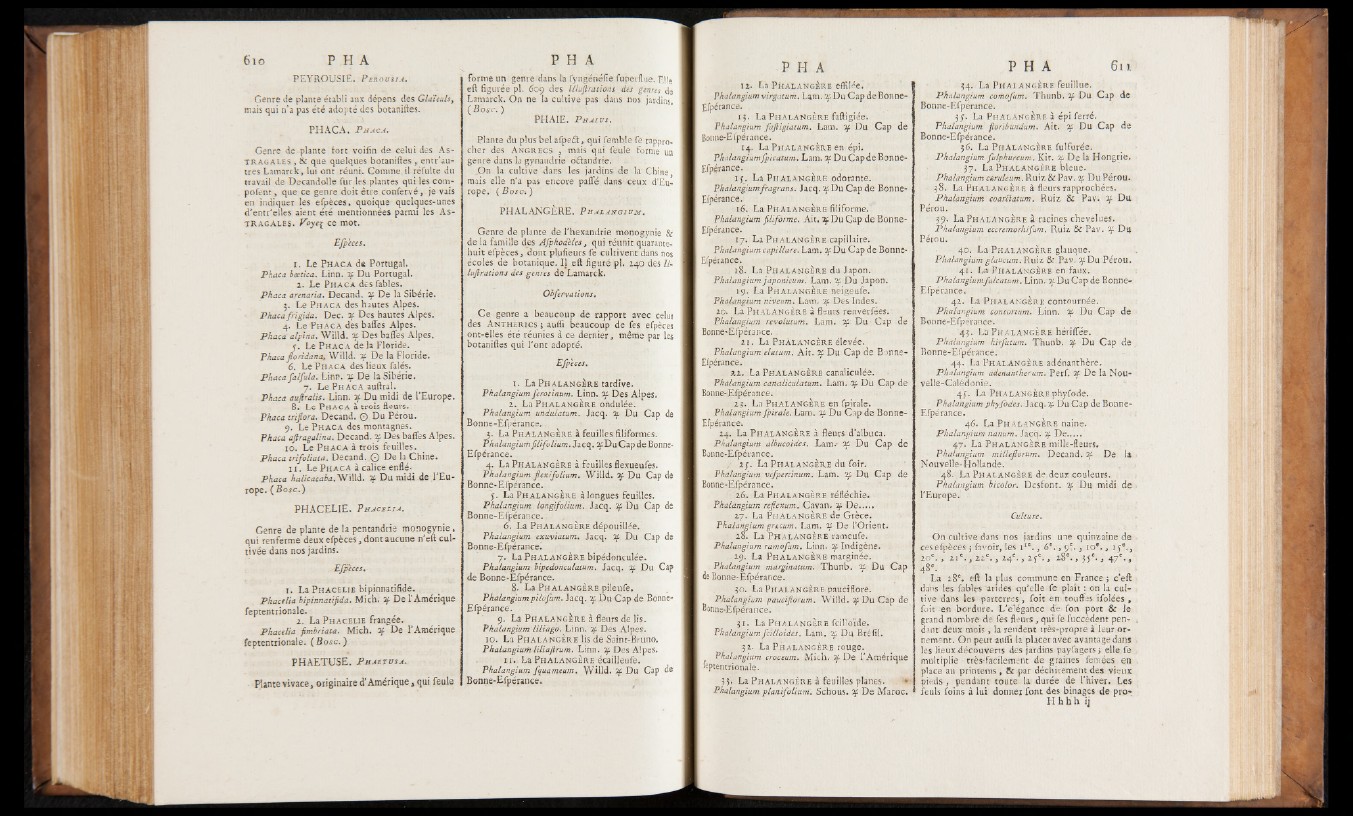 610 PHA
PEYROUSIE. PEROUSIA.
Genre de plante établi aux dépens des Glaïeuls,
mais qui n'a pas été adopté des botanistes.
PHACA. PHACA.
Genre de plante fort voisin de celui des AS-
TRAGALES, & que quelques botanistes, entr'au-
tres Lamarck, lui ont réuni. Comme il résulte du
travail de Decandolle sur les plantes qui les com-
posent, que ce genre doit être conservé, je vais
en indiquer les espèces, quoique quelques-unes
d'entr'elles aient été mentionnées parmi les AS-
TRAGALES. Voyez ce mot.
Espèces.
1. Le PHACA de Portugal.
Phaca bœtica. Linn. ♃ Du Portugal.
2. Le PHACA des sables.
Phaca arenaria. Decand. ♃ De la Sibérie.
3. Le PHACA des hautes Alpes.
Phaca frigida. Dec. ♃ Des hautes Alpes.
4. Le PHACA des basses Alpes.
Phaca alpina. Willd. ♃ Des basses Alpes.
5. Le PHACA de la Floride.
Phaca floridana, Willd. ♃ De la Floride.
6. Le PHACA des lieux salés.
Phaca salsula. Linn. ♃ De la Sibérie.
7. Le PHACA austral.
Phaca australis. Linn. ♃ Du midi de l'Europe.
8. Le PHACA à trois fleurs.
Phaca triflora. Decand. ☉ Du Pérou.
9. Le PHACA des montagnes.
Phaca astragalina. Decand. ♃ Des basses Alpes.
10. Le PHACA à trois feuilles.
Phaca trifoliata. Decand. ☉ De la Chine.
11. Le PHACA à calice enflé.
Phaca halicacaba. Willd. ♃ Du midi de l'Eu-
rope. (Bosc.)
PHACELIE. PHACELIA.
Genre de plante de la pentandrie monogynie,
qui renferme deux espèces, dont aucune n'est cul-
tivée dans nos jardins.
Espèces.
1. La PHACELIE bipinnatifide.
Phacelia bipinnatifida. Mich. ♃ De l'Amérique
septentrionale.
2. La PHACELIE frangée.
Phacelia fimbriata. Mich. ♃ De l'Amérique
septentrionale. (Bosc.)
PHAETUSE. PHAETUSA.
Plante vivace, originaire d'Amérique, qui seule
PHA
forme un genre dans la syngénésie superflue. Elle
est figurée pl. 609 des Illustrations des genres de
Lamarck. On ne la cultive pas dans nos jardins.
(Bosc.)
PHAIE. PHAIUS.
Plante du plus bel aspect, qui semble se rappro-
cher des ANGRECS, mais qui seule forme un
genre dans la gynandrie octandrie.
On la cultive dans les jardins de la Chine,
mais elle n'a pas encore passé dans ceux d'Eu-
rope. (Bosc.)
PHALANGÈRE. PHALANGIUM.
Genre de plante de l'hexandrie monogynie &
de la famille des Asphodèles, qui réunit quarante-
huit espèces, dont plusieurs se cultivent dans nos
écoles de botanique. Il est figuré pl. 240 des Il-
lustrations des genres de Lamarck.
Observations.
Ce genre a beaucoup de rapport avec celui
des ANTHERICS; aussi beaucoup de ses espèces
ont-elles été réunies à ce dernier, même par les
botanistes qui l'ont adopté.
Espèces.
1. La PHALANGÈRE tardive.
Phalangium serotinum. Linn. ♃ Des Alpes.
2. La PHALANGÈRE ondulée.
Phalangium undulatum. Jacq. ♃ Du Cap de
Bonne-Espérance.
3. La PHALANGÈRE à feuilles filiformes.
Phalangium filifolium. Jacq. ♃ Du Cap de Bonne-
Espérance.
4. La PHALANGÈRE à feuilles flexueuses.
Phalangium flexifolium. Willd. ♃ Du Cap de
Bonne-Espérance.
5. La PHALANGÈRE à longues feuilles.
Phalangium longifolium. Jacq. ♃ Du Cap de
Bonne-Espérance.
6. La PHALANGÈRE dépouillée.
Phalangium exuviatum. Jacq. ♃ Du Cap de
Bonne-Espérance.
7. La PHALANGÈRE bipédonculée.
Phalangium bipedonculatum. Jacq. ♃ Du Cap
de Bonne-Espérance.
8. La PHALANGÈRE pileuse.
Phalangium pilosum. Jacq. ♃ Du Cap de Bonne-
Espérance.
9. La PHALANGÈRE à fleurs de lis.
Phalangium liliago. Linn. ♃ Des Alpes.
10. La PHALANGÈRE lis de Saint-Bruno.
Phalangium liliastrum. Linn. ♃ Des Alpes.
11. La PHALANGÈRE écailleuse.
Phalangium squameum. Willd. ♃ Du Cap de
Bonne-Espérance.
PHA
12. La PHALANGÈRE effilée.
Phalangium virgatum. Lam. ♃ Du Cap de Bonne-
Espérance.
13. La PHALANGÈRE fastigiée.
Phalangium fastigiatum. Lam. ♃ Du Cap de
Bonne-Espérance.
14. La PHALANGÈRE en épi.
Phalangium spicatum. Lam. ♃ Du Cap de Bonne-
Espérance.
15. La PHALANGÈRE odorante.
Phalangium fragrans. Jacq. ♃ Du Cap de Bonne-
Espérance.
16. La PHALANGÈRE filiforme.
Phalangium filiforme. Ait. ♃ Du Cap de Bonne-
Espérance.
17. La PHALANGÈRE capillaire.
Phalangium capillare. Lam. ♃ Du Cap de Bonne-
Espérance.
18. La PHALANGÈRE du Japon.
Phalangium japonicum. Lam. ♃ Du Japon.
19. La PHALANGÈRE neigeuse.
Phalangium niveum. Lam. ♃ Des Indes.
20. La PHALANGÈRE à fleurs renversées.
Phalangium revolutum. Lam. ♃ Du Cap de
Bonne-Espérance.
21. La PHALANGÈRE élevée.
Phalangium elatum. Ait. ♃ Du Cap de Bonne-
Espérance.
22. La PHALANGÈRE canaliculée.
Phalangium canaliculatum. Lam. ♃ Du Cap de
Bonne-Espérance.
23. La PHALANGÈRE en spirale.
Phalangium spirale. Lam. ♃ Du Cap de Bonne-
Espérance.
24. La PHALANGÈRE à fleurs d'albuca.
Phalangium albucoides. Lam. ♃ Du Cap de
Bonne-Espérance.
25. La PHALANGÈRE du soir.
Phalangium vespertinum. Lam. ♃ Du Cap de
Bonne-Espérance.
26. La PHALANGÈRE réfléchie.
Phalangium reflexum. Cavan. ♃ De.....
27. La PHALANGÈRE de Grèce.
Phalangium græcum. Lam. ♃ De l'Orient.
28. La PHALANGÈRE rameuse.
Phalangium ramosum. Linn. ♃ Indigène.
29. La PHALANGÈRE marginée.
Phalangium marginatum. Thunb. ♃ Du Cap
de Bonne-Espérance.
30. La PHALANGÈRE pauciflore.
Phalangium pauciflorum. Willd. ♃ Du Cap de
Bonne-Espérance.
31. La PHALANGÈRE scilloïde.
Phalangium scilloides. Lam. ♃ Du Brésil.
32. La PHALANGÈRE rouge.
Phalangium croceum. Mich. ♃ De l'Amérique
septentrionale.
33. La PHALANGÈRE à feuilles planes.
Phalangium planifolium. Schous. ♃ De Maroc.
PHA 611
34. La PHALANGÈRE feuillue.
Phalangium comosum. Thunb. ♃ Du Cap de
Bonne-Espérance.
35. La PHALANGÈRE à épi serré.
Phalangium floribundum. Ait. ♃ Du Cap de
Bonne-Espérance.
36. La PHALANGÈRE sulfurée.
Phalangium sulphureum. Kit. ♃ De la Hongrie.
37. La PHALANGÈRE bleue.
Phalangium cæruleum. Ruiz & Pav. ♃ Du Pérou.
38. La PHALANGÈRE à fleurs rapprochées.
Phalangium coarctatum. Ruiz & Pav. ♃ Du
Pérou.
39. La PHALANGÈRE à racines chevelues.
Phalangium eccremorhisum. Ruiz & Pav. ♃ Du
Pérou.
40. La PHALANGÈRE glauque.
Phalangium glaucum. Ruiz & Pav. ♃ Du Pérou.
41. La PHALANGÈRE en faux.
Phalangium falcatum. Linn. ♃ Du Cap de Bonne-
Espérance.
42. La PHALANGÈRE contournée.
Phalangium contortum. Linn. ♃ Du Cap de
Bonne-Espérance.
43. La PHALANGÈRE hérissée.
Phalangium hirsutum. Thunb. ♃ Du Cap de
Bonne-Espérance.
44. La PHALANGÈRE adénanthère.
Phalangium adenantherum. Pers. ♃ De la Nou-
velle-Calédonie.
45. La PHALANGÈRE physode.
Phalangium physodes. Jacq. ♃ Du Cap de Bonne-
Espérance.
46. La PHALANGÈRE naine.
Phalangium nanum. Jacq. ♃ De.....
47. La PHALANGÈRE mille-fleurs.
Phalangium milleflorum. Decand. ♃ De la
Nouvelle-Hollande.
48. La PHALANGÈRE de deux couleurs.
Phalangium bicolor. Desfont. ♃ Du midi de
l'Europe.
Culture.
On cultive dans nos jardins une quinzaine de
ces espèces; savoir, les 1re., 6e., 9e., 10e., 15e.,
20e., 21e., 22e., 24e., 25e., 28e., 35e., 47e.,
48e.
La 28e. est la plus commune en France; c'est
dans les sables arides qu'elle se plaît: on la cul-
tive dans les parterres, soit en touffes isolées,
soit en bordure. L'élégance de son port & le
grand nombre de ses fleurs, qui se succèdent pen-
dant deux mois, la rendent très-propre à leur or-
nement. On peut aussi la placer avec avantage dans
les lieux découverts des jardins paysagers; elle se
multiplie très-facilement de graines semées en
place au printemps, & par déchirement des vieux
pieds, pendant toute la durée de l'hiver. Les
seuls soins à lui donner sont des binages de pro-
Hhhh ij